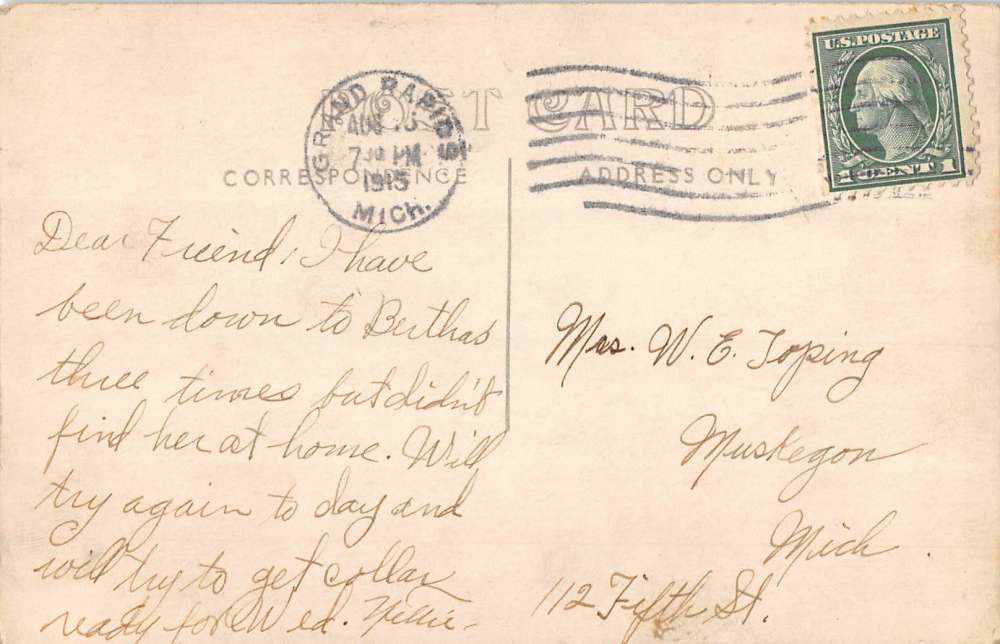 POST CARD
U.S. POSTAGE
1 CENT 1
GRAND RAPIDS
AUG
7 PM
1915
MICH.
CORRESPONDENCE
ADDRESS ONLY
Dear Friend, I have
been down to Berthas
three times but didn't
find her at home. Will
try again to day and
will try to get collar
ready for Wed. Nellie.
Mrs. W. E. Toping
Muskegon
Mich.
112 Fifth St.